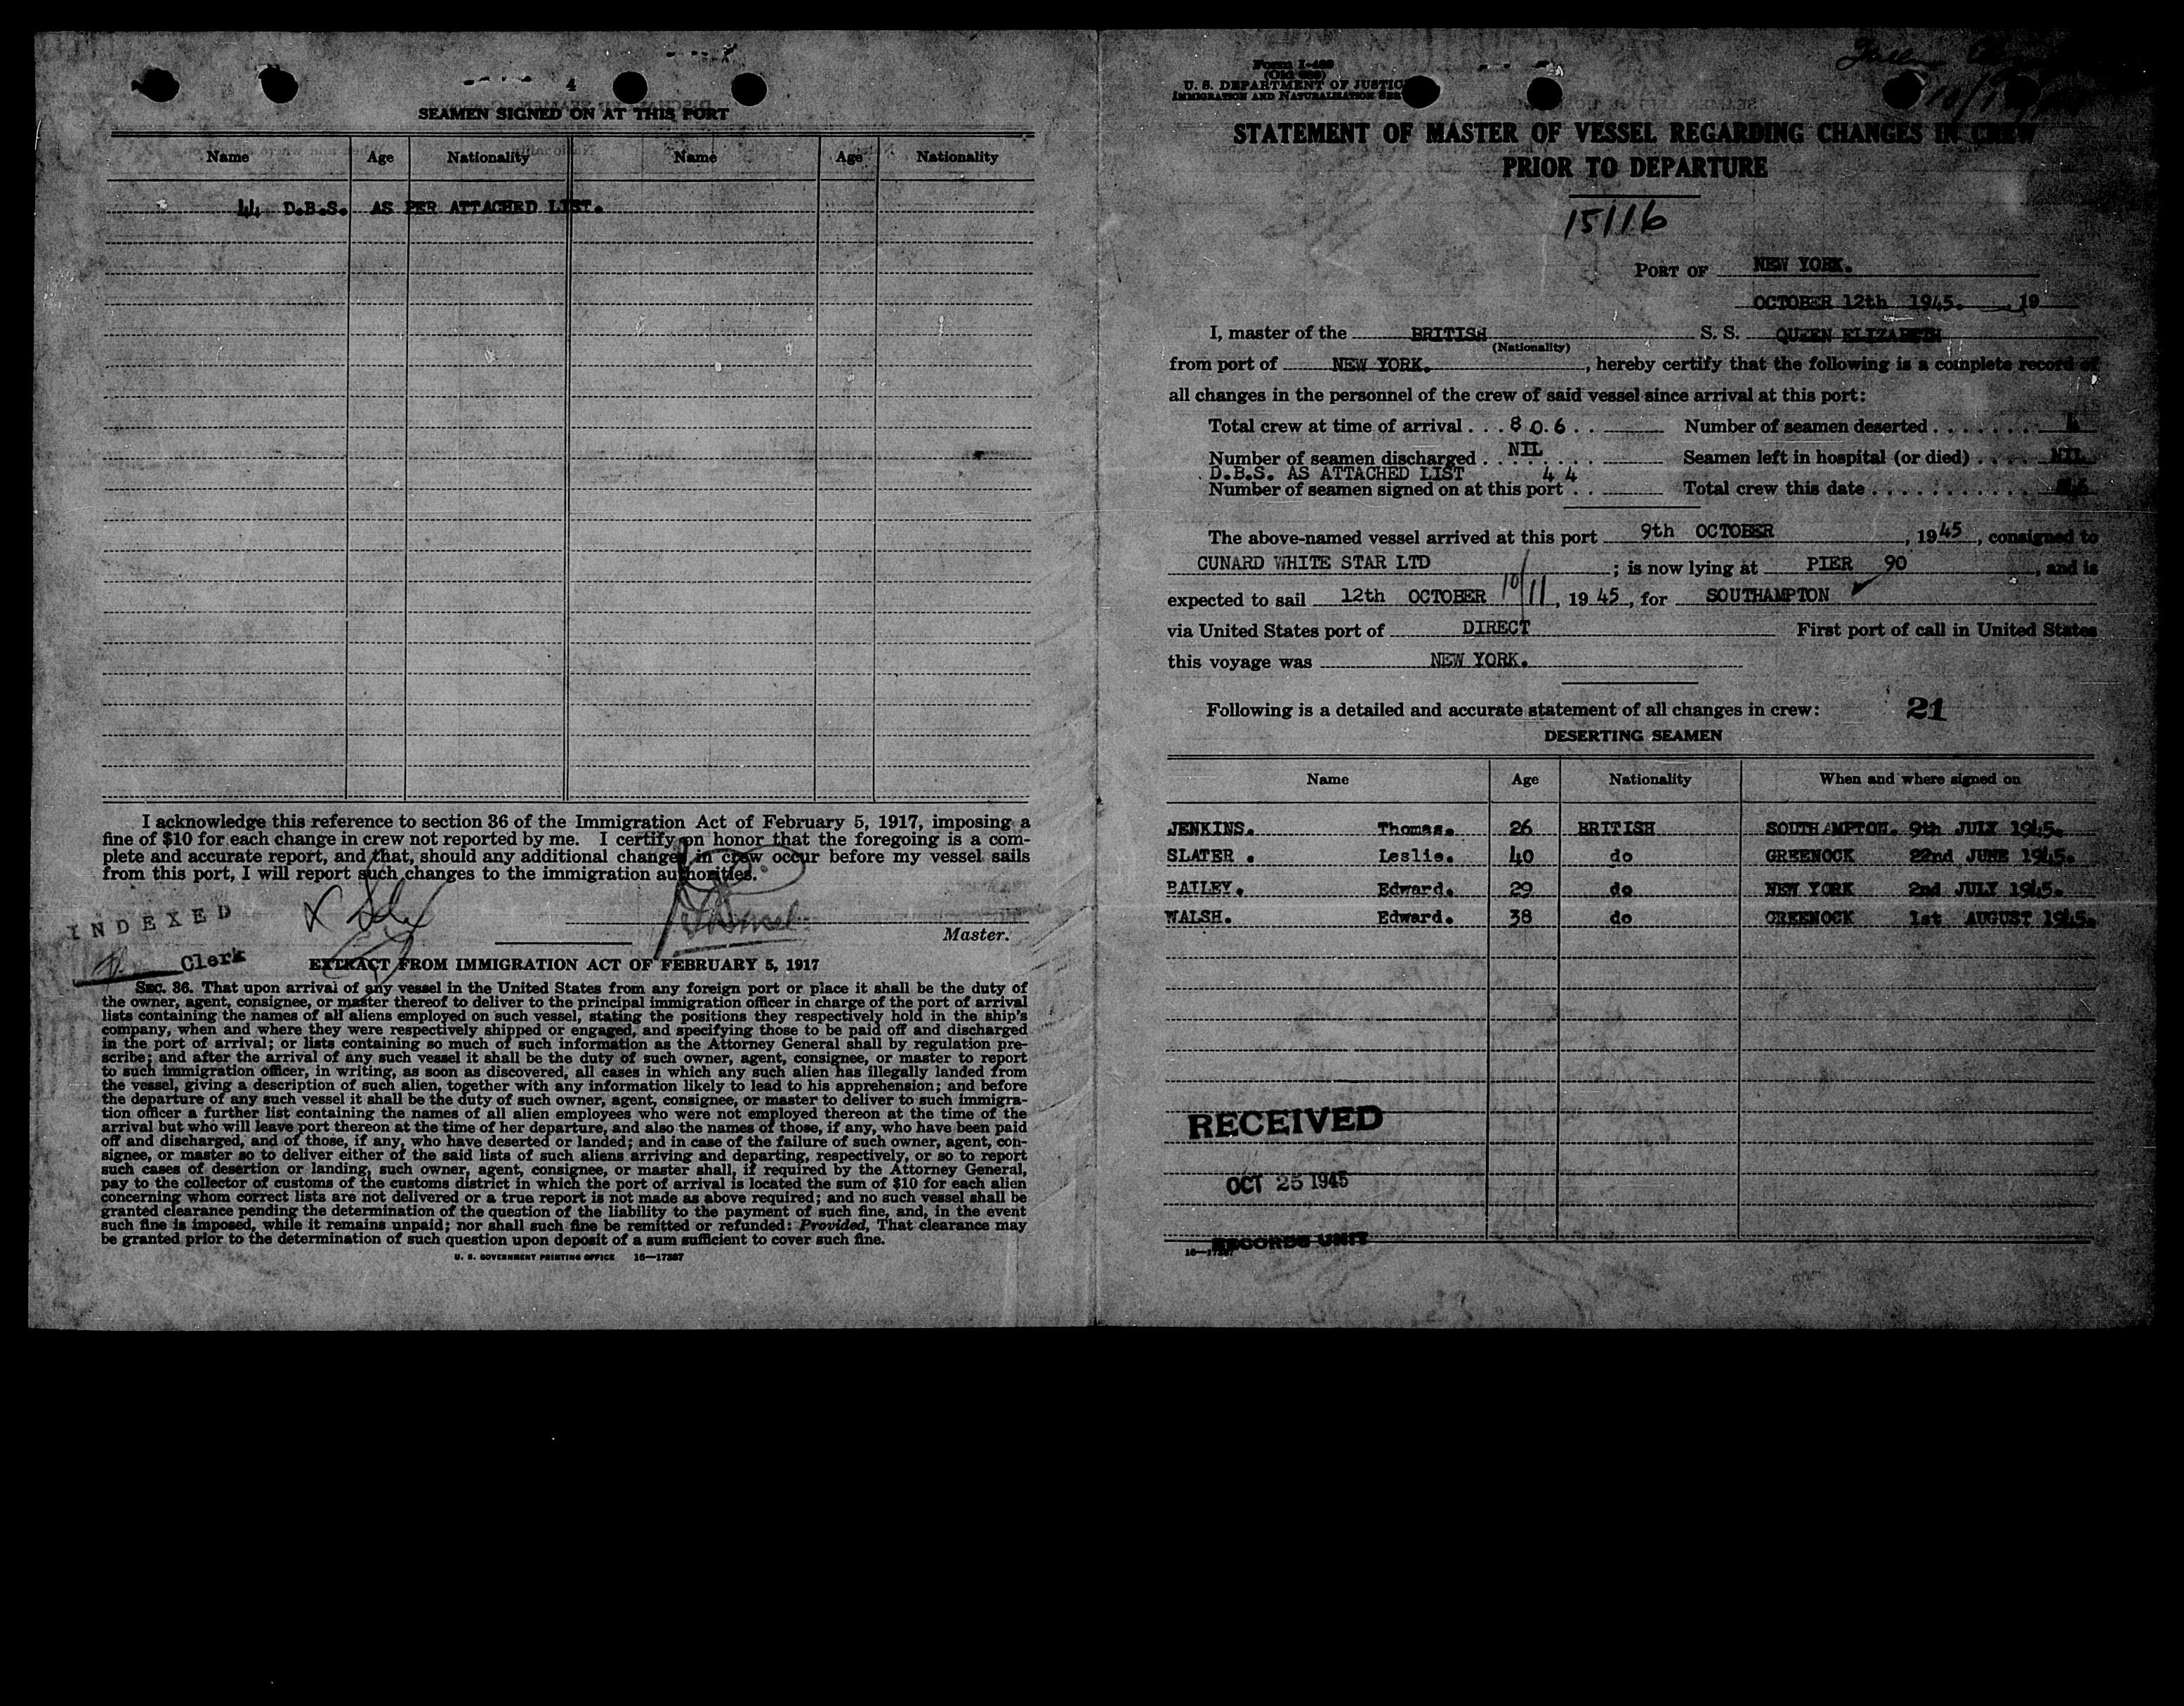 4
SEAMEN SIGNED ON AT THIS PORT
Name Age Nationality Name Age Nationality
44 D.B.S. AS PER ATTACHED LIST.
I acknowledge this reference to section 36 of the Immigration Act of February 5, 1917, imposing a
fine of $10 for each change in crew not reported by me. I certify on honor that the foregoing is a com-
plete and accurate report, and that, should any additional changes in crew occur before my vessel sails
from this port, I will report such changes to the immigration authorities.
INDEXED
Master.
Clerk
EXTRACT FROM IMMIGRATION ACT OF FEBRUARY 5, 1917
SEC. 36. That upon arrival of any vessel in the United States from any foreign port or place it shall be the duty of
the owner, agent, consignee, or master thereof to deliver to the principal immigration officer in charge of the port of arrival
lists containing the names of all aliens employed on such vessel, stating the positions they respectively hold in the ship's
company, when and where they were respectively shipped or engaged, and specifying those to be paid off and discharged
in the port of arrival; or lists containing so much of such information as the Attorney General shall by regulation pre-
scribe; and after the arrival of any such vessel it shall be the duty of such owner, agent, consignee, or master to report
to such immigration officer, in writing, as soon as discovered, all cases in which any such alien has illegally landed from
the vessel, giving a description of such alien, together with any information likely to lead to his apprehension; and before
the departure of any such vessel it shall be the duty of such owner, agent, consignee, or master to deliver to such immigra-
tion officer a further list containing the names of all alien employees who were not employed thereon at the time of the
arrival but who will leave port thereon at the time of her departure, and also the names of those, if any, who have been paid
off and discharged, and of those, if any, who have deserted or landed; and in case of the failure of such owner, agent, con-
signee, or master so to deliver either of the said lists of such aliens arriving and departing, respectively, or so to report
such cases of desertion or landing, such owner, agent, consignee, or master shall, if required by the Attorney General,
pay to the collector of customs of the customs district in which the port of arrival is located the sum of $10 for each alien
concerning whom correct lists are not delivered or a true report is not made as above required; and no such vessel shall be
granted clearance pending the determination of the question of the liability to the payment of such fine, and, in the event
such fine is imposed, while it remains unpaid; nor shall such fine be remitted or refunded: Provided, That clearance may
be granted prior to the determination of such question upon deposit of a sum sufficient to cover such fine.
U. S. GOVERNMENT PRINTING OFFICE 16—17387
Form I-489
U. S. DEPARTMENT OF JUSTIC
IMMIGRATION AND NATURALIZATION SER
STATEMENT OF MASTER OF VESSEL REGARDING CHANGES IN CREW
PRIOR TO DEPARTURE
15116
PORT OF NEW YORK.
OCTOBER 12th 1945. , 19
I, master of the BRITISH S. S. QUEEN ELIZABETH
(Nationality)
from port of NEW YORK. , hereby certify that the following is a complete record of
all changes in the personnel of the crew of said vessel since arrival at this port:
Total crew at time of arrival . . . 806 . . Number of seamen deserted . . . . . . . 4
Number of seamen discharged . NIL . . . Seamen left in hospital (or died) . . . . NIL
D.B.S. AS ATTACHED LIST 44
Number of seamen signed on at this port . . Total crew this date . . . . . . . . . . .
The above-named vessel arrived at this port 9th OCTOBER , 1945 , consigned to
CUNARD WHITE STAR LTD ; is now lying at PIER 90 , and is
expected to sail 12th OCTOBER 10/11 , 1945 , for SOUTHAMPTON
via United States port of DIRECT First port of call in United States
this voyage was NEW YORK.
Following is a detailed and accurate statement of all changes in crew: 21
DESERTING SEAMEN
Name Age Nationality When and where signed on
JENKINS. Thomas. 26 BRITISH SOUTHAMPTON. 9th JULY 1945.
SLATER . Leslie. 40 do GREENOCK 22nd JUNE 1945.
BAILEY. Edward. 29 do NEW YORK 2nd JULY 1945.
WALSH. Edward. 38 do GREENOCK 1st AUGUST 1945.
RECEIVED
OCT 25 1945
RECORDS UNIT